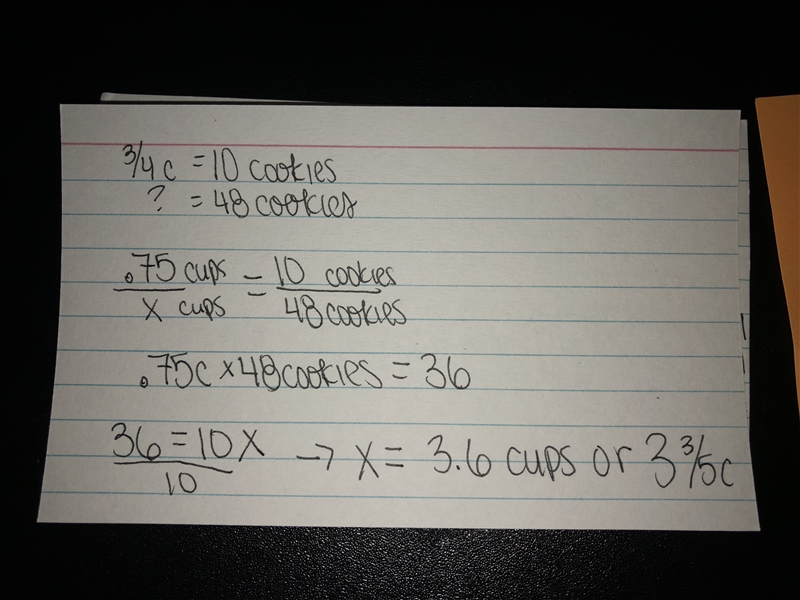 3/4 c = 10 cookies
? = 48 cookies
.75 cups = 10 cookies
x cups 48 cookies
.75c x 48 cookies = 36
36 = 10x → x = 3.6 cups or 3 3/5c
10